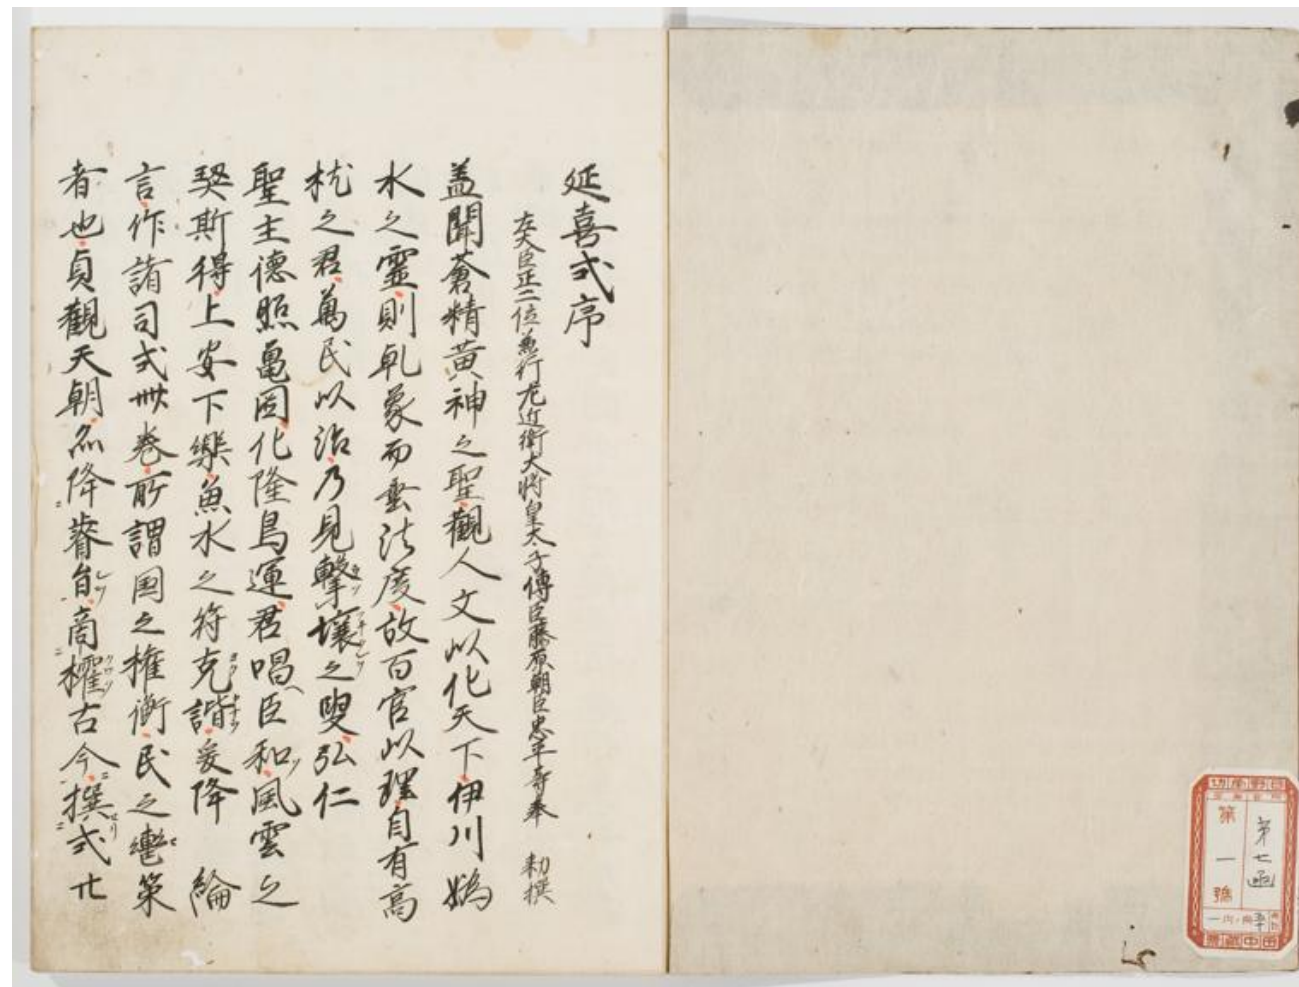 延喜式序
左大臣正二位兼行左近衛大將皇太子傅臣藤原朝臣忠平等奉 勅撰
盖聞蒼精黃神之聖觀人文以化天下伊川嬀
水之靈則乹象而垂法度故百官以理自有高
枕之君萬民以治乃見擊壤之叟弘仁
聖主德照龜圖化隆鳥運君唱臣和風雲之
契斯得上安下樂魚水之符克諧爰降 綸
言作諸司式卌卷所謂国之權衡民之轡策
者也貞觀天朝亦降眷旨商櫂古今撰式廿
第七函
第一號